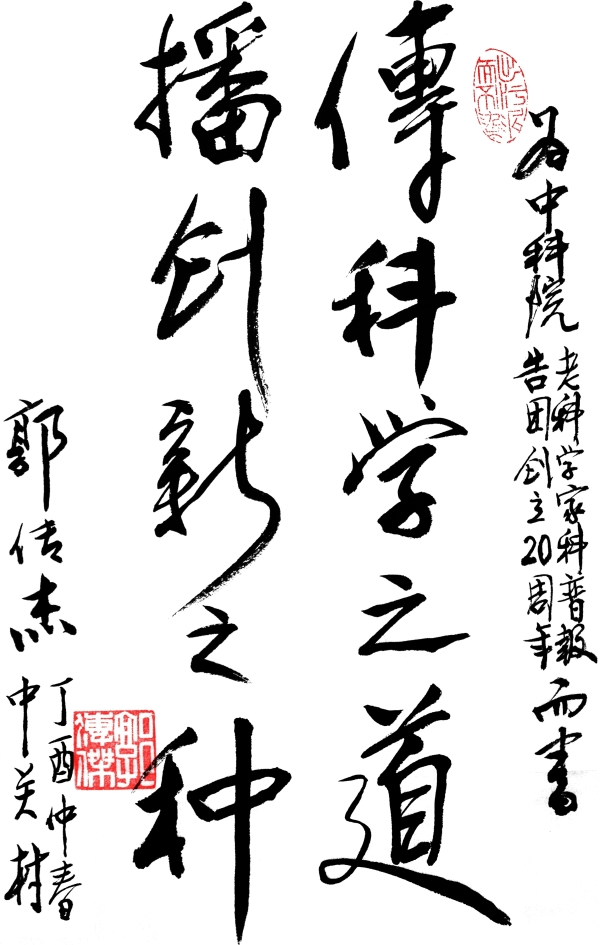 为中科院
老科学家科普报
告团创立20周年
而书
傳科学之道
播创新之种
郭传杰
丁酉仲春
中关村
郭傳傑印